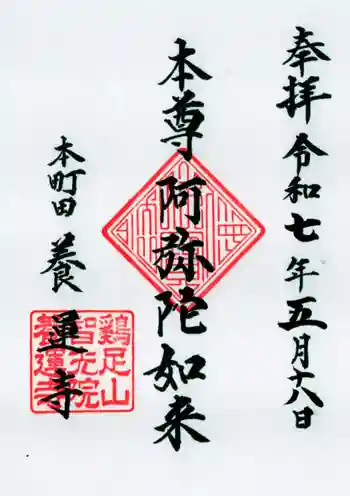 奉拝 令和七年五月十八日
本尊 阿弥陀如来
本町田 養運寺
鷄足山
智光院
養運寺